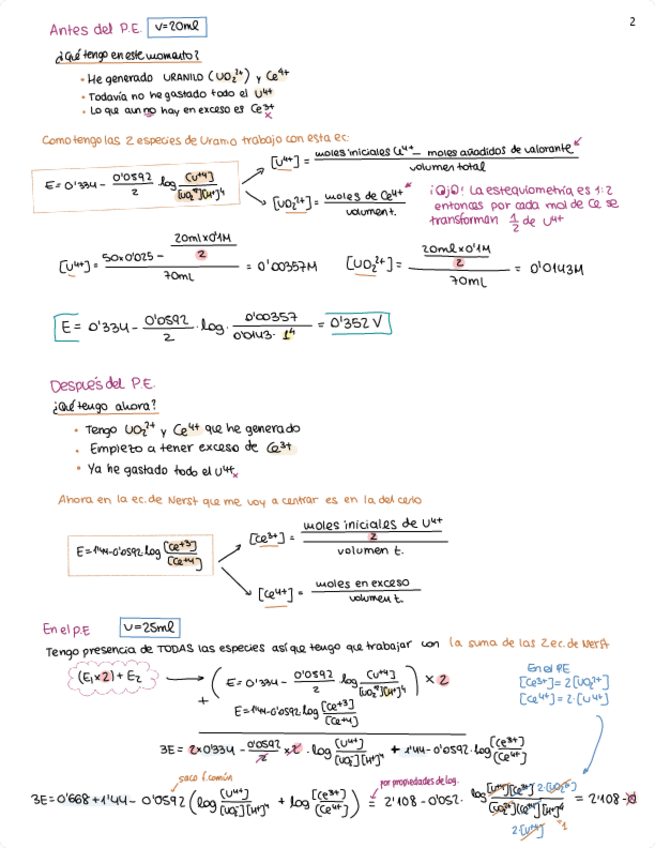 2
Antes del P.E. V=20ml
¿Qué tengo en este momento?
• He generado URANILO (UO₂²⁺) y Ce⁴⁺
• Todavía no he gastado todo el U⁴⁺
• Lo que aun no hay en exceso es Ce³⁺
Como tengo las 2 especies de Uranio trabajo con esta ec:
E=0'334- 0'0592/2 log [U+4]/[UO₂⁺][H⁺]⁴
[U⁴⁺] = moles iniciales U⁴⁺ - moles añadidos de valorante / volumen total
[UO₂²⁺] = moles de Ce⁴⁺ / volumen t.
¡OJO! La estequiometría es 1:2
entonces por cada mol de Ce se
transforman 1/2 de U⁴⁺
[U⁴⁺] = 50x0'025 - 20mlx0'1M/2 / 70mL = 0'00357M
[UO₂²⁺] = 20mlx0'1M/2 / 70mL = 0'0143M
E = 0'334 - 0'0592/2 · log · 0'00357/0'0143· 1⁴ = 0'352 V
Después del P.E.
¿Qué tengo ahora?
• Tengo UO₂²⁺ y Ce⁴⁺ que he generado
• Empiezo a tener exceso de Ce³⁺
• Ya he gastado todo el U⁴⁺
Ahora en la ec. de Nerst que me voy a centrar es en la del cerio
E=1'44-0'0592 log [Ce+3]/[Ce+4]
[Ce³⁺] = moles iniciales de U⁴⁺/2 / volumen t.
[Ce⁴⁺] = moles en exceso / volumen t.
En el p.E V=25ml
Tengo presencia de TODAS las especies así que tengo que trabajar con la suma de las 2 ec. de Nerst
(E₁x2)+E₂ → ( E=0'334- 0'0592/2 log [U+4]/[UO₂⁺][H⁺]⁴ ) x 2
+ E=1'44-0'0592 log [Ce+3]/[Ce+4]
En el PE
[Ce³⁺]= 2[UO₂²⁺]
[Ce⁴⁺]= 2·[U⁴⁺]
3E = 2x0'334 - 0'0592/2 x2 · log [U⁴⁺]/[UO₂⁺][H⁺]⁴ + 1'44-0'0592·log [Ce³⁺]/[Ce⁴⁺]
saco f. común
por propiedades de log.
3E=0'668+1'44- 0'0592 (log [U⁴⁺]/[UO₂⁺][H⁺]⁴ + log [Ce³⁺]/[Ce⁴⁺]) = 2'108 - 0'052· log [U⁴⁺][Ce³⁺] 2·[UO₂²⁺]/[UO₂²⁺][Ce⁴⁺][H⁺]⁴ = 2'108-0
2·[U⁴⁺] =1